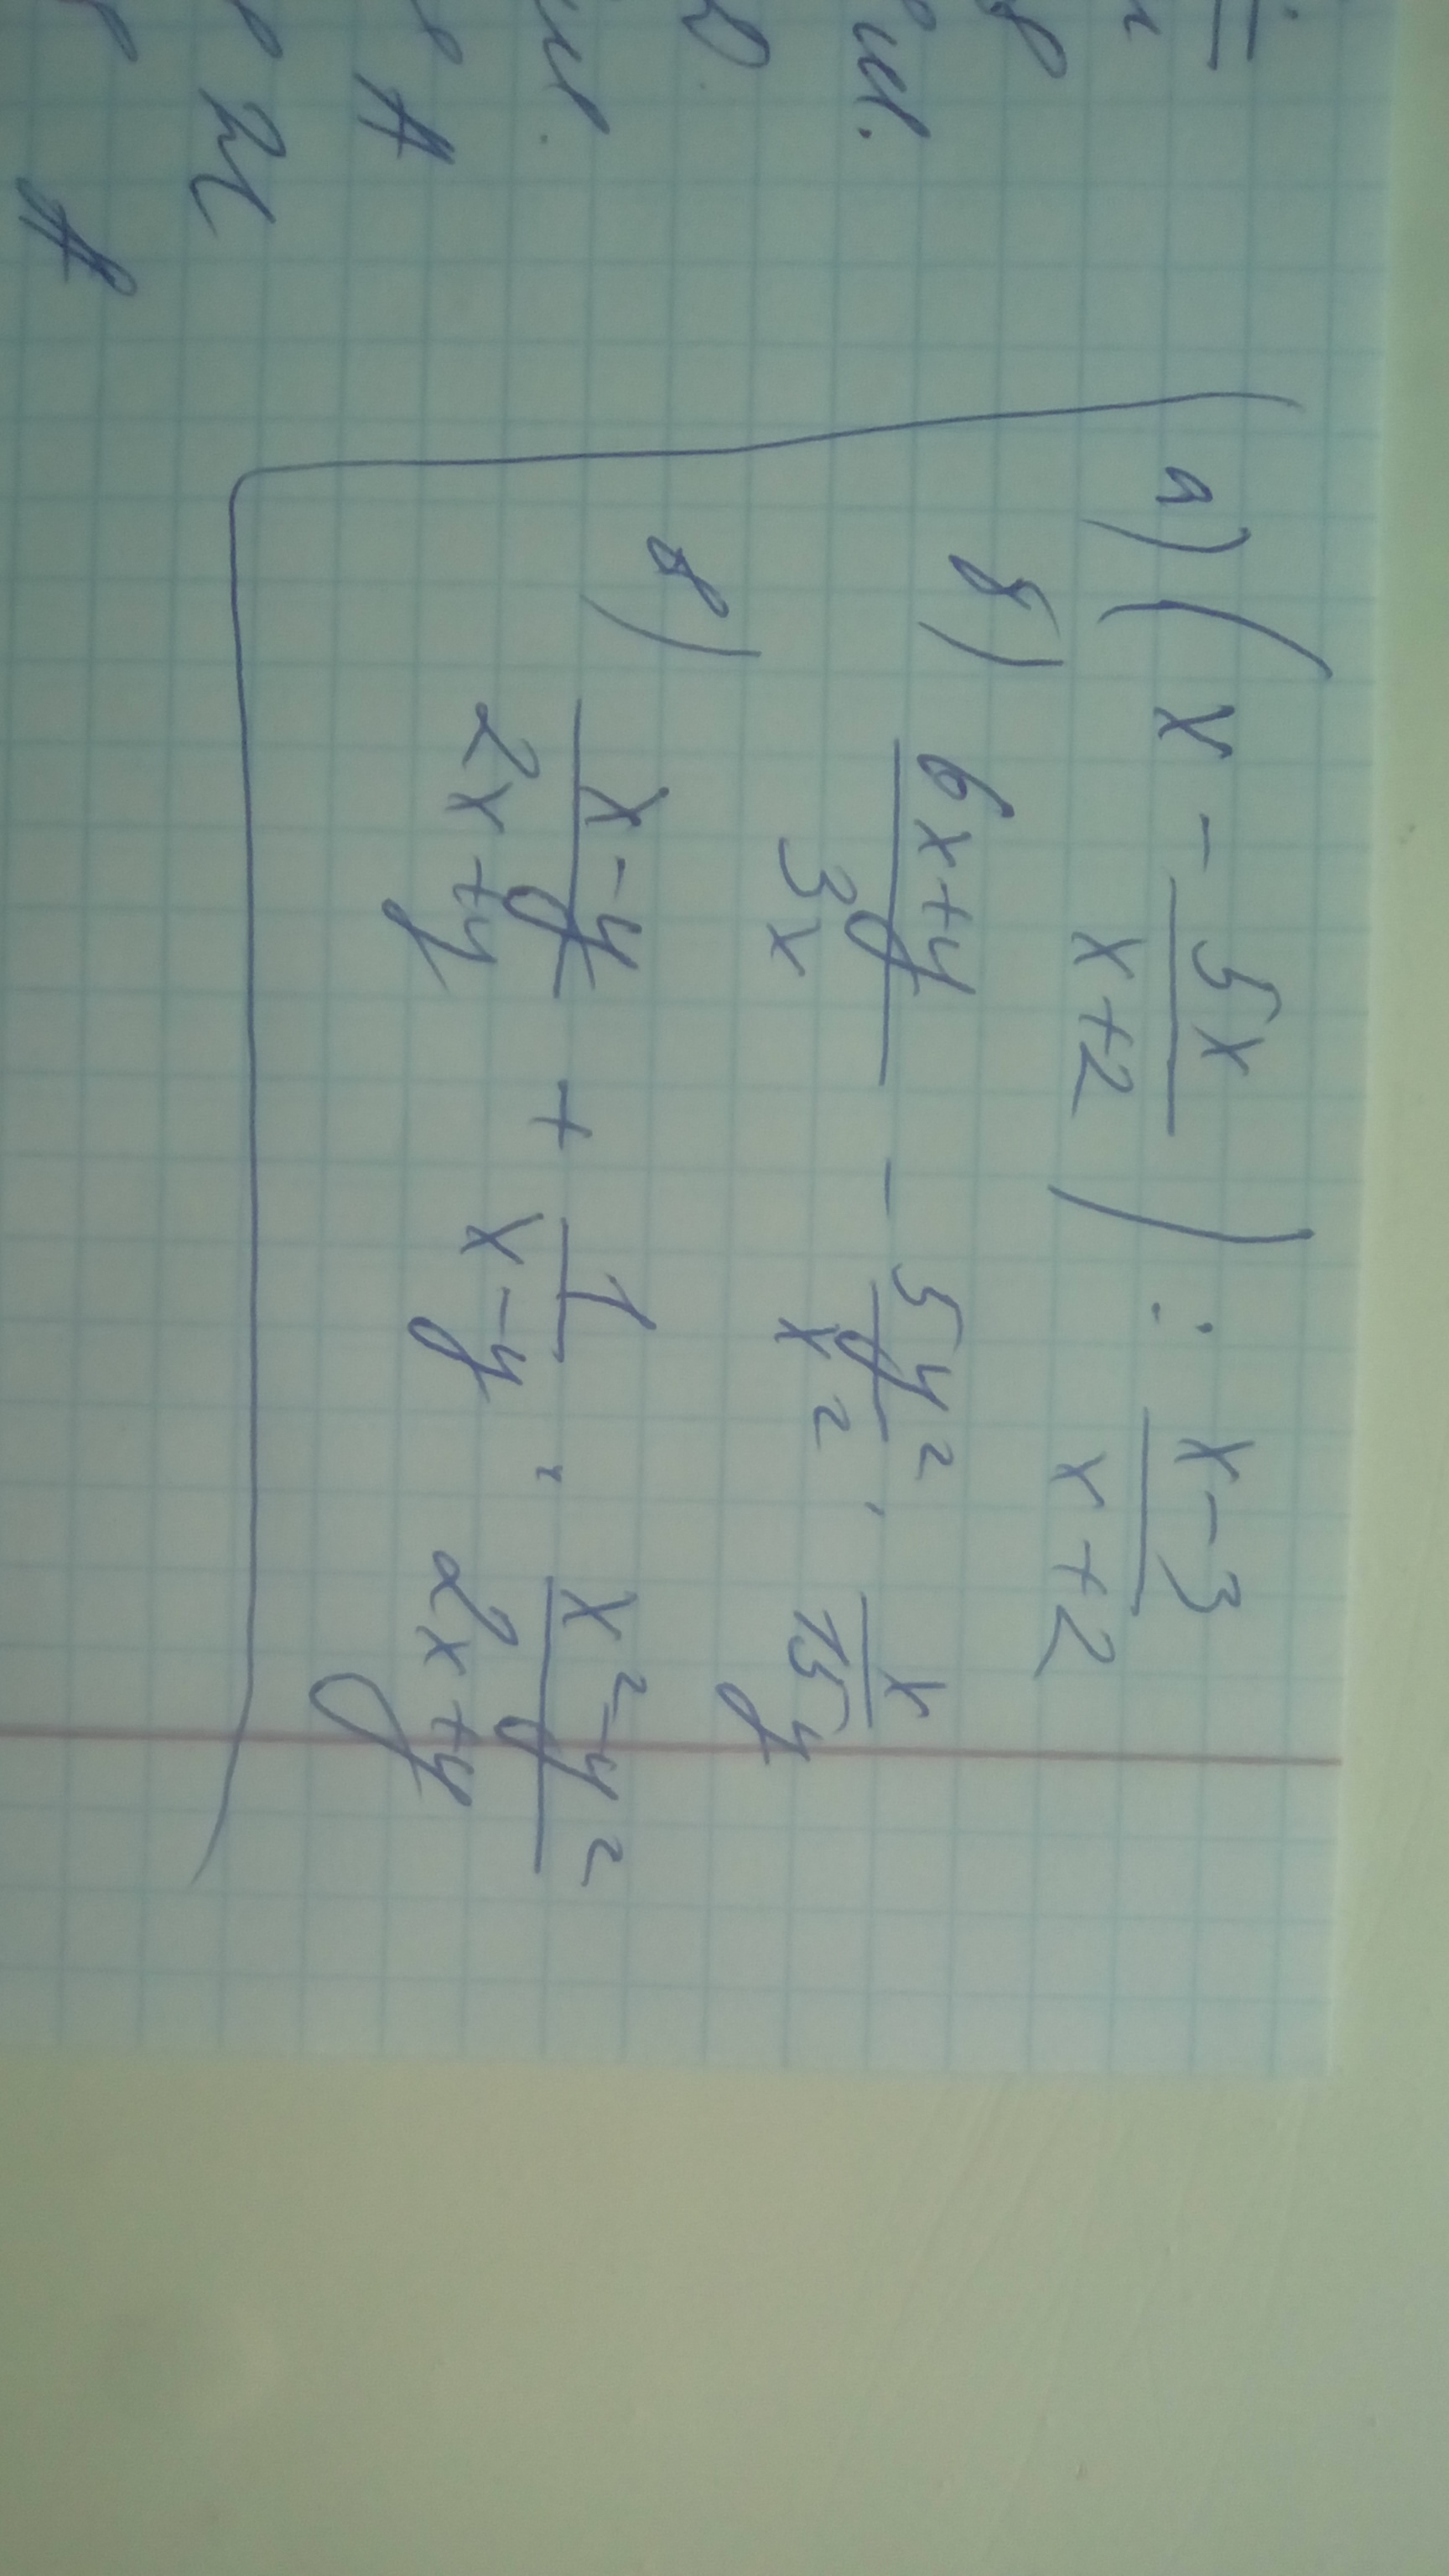 а) (x - 5x/(x+2)) : (x-3)/(x+2)
б) (6x+y)/(3x) - 5y²/x² · x/(15y)
в) (x-y)/(2x+y) + 1/(x-y) · (x²-y²)/(2x+y)